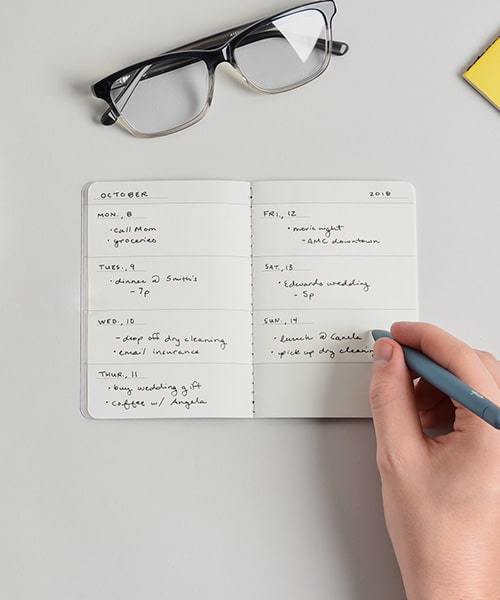 OCTOBER
MON., 8
• Call Mom
• groceries
TUES., 9
• dinner @ Smith's
- 7p
WED., 10
- drop off dry cleaning
• email insurance
THUR., 11
• buy wedding gift
• coffee w/ Angela
2018
FRI., 12
• movie night
- AMC downtown
SAT., 13
• Edwards wedding
- 5p
SUN., 14
• lunch @ Canela
• pick up dry cleanin